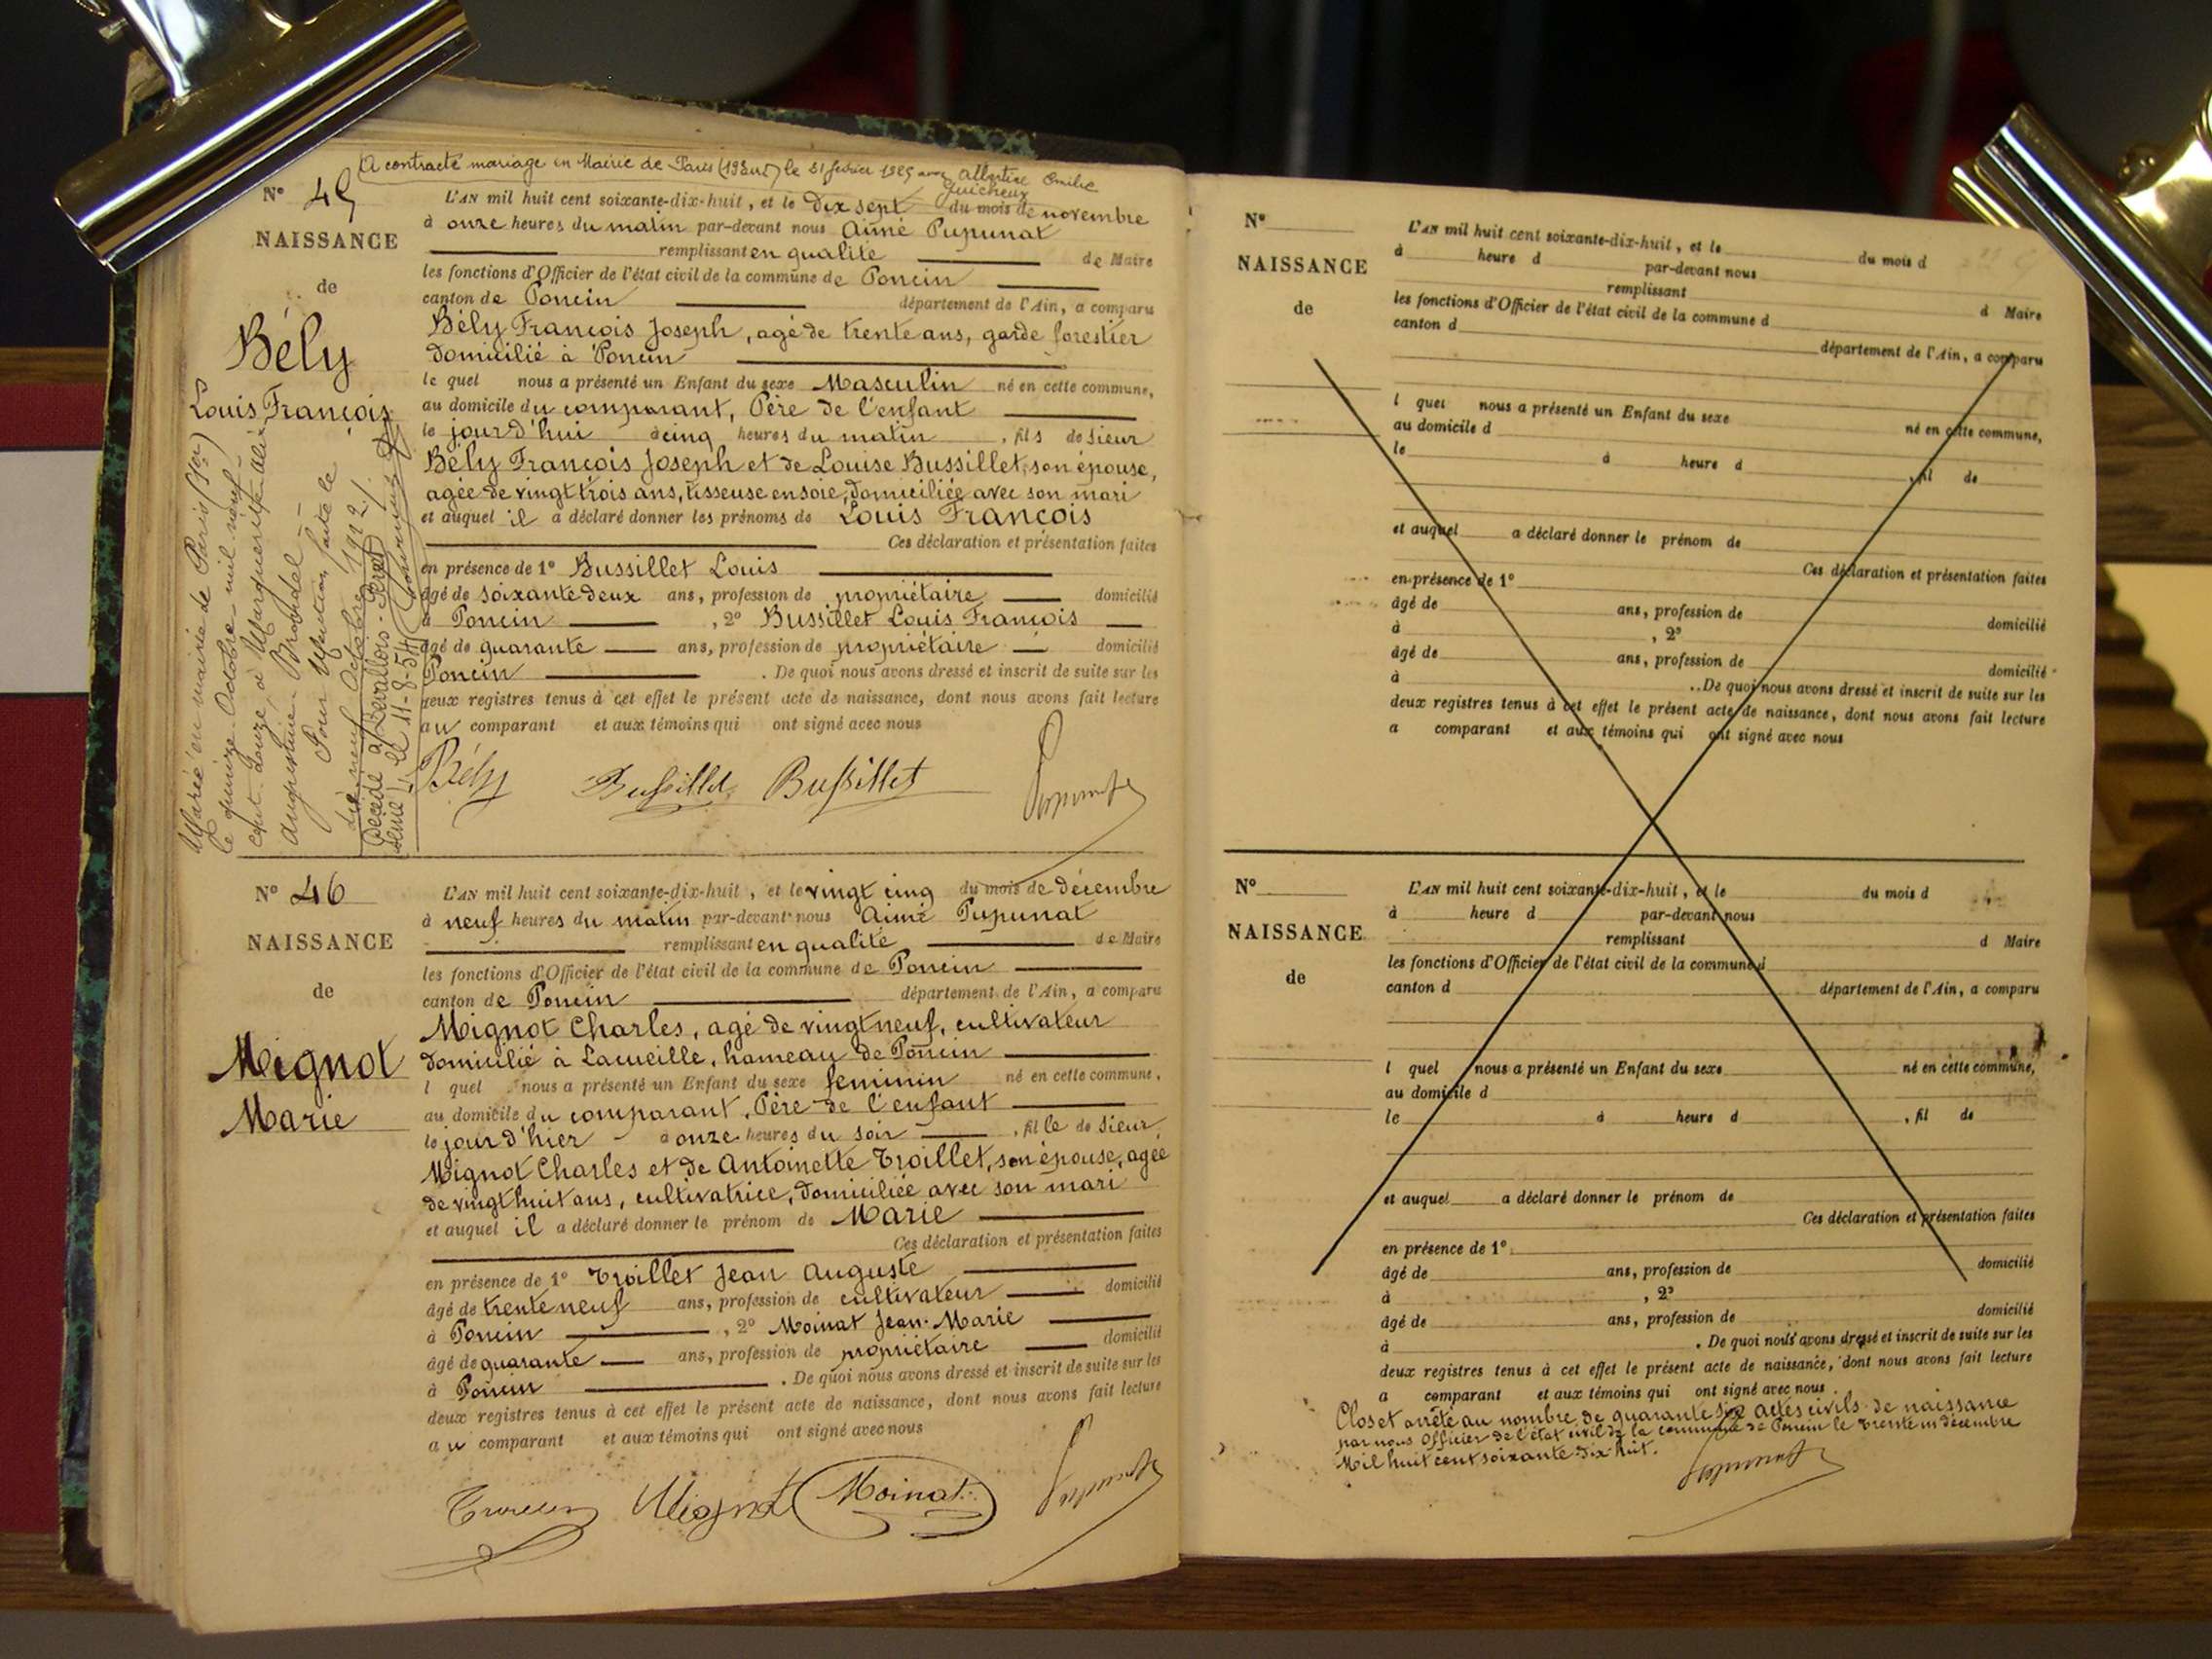 A contracté mariage en Mairie de Paris le février avec Albertine Emilie
Guicheux
N° 45
NAISSANCE
de
Bély
Louis François
Marié en mairie de Paris
le quinze Octobre mil neuf
cent douze, à Marguerite
Augustine
Pour Mention faite le
dix neuf Octobre 1912
Décédé à Levallois-Perret
Seine le 11-8-54
L'AN mil huit cent soixante-dix-huit, et le dix sept du mois de novembre
à onze heures du matin par-devant nous Aimé Pupunat
remplissant en qualité de Maire
les fonctions d'Officier de l'état civil de la commune de Poncin
canton de Poncin département de l'Ain, a comparu
Bély François Joseph, agé de trente ans, garde forestier
domicilié à Poncin
le quel nous a présenté un Enfant du sexe Masculin né en cette commune,
au domicile du comparant, Père de l'enfant
le jour d'hui à cinq heures du matin, fils de sieur
Bély François Joseph et de Louise Bussillet, son épouse,
agée de vingt trois ans, tisseuse en soie, domiciliée avec son mari
et auquel il a déclaré donner les prénoms de Louis François
Ces déclaration et présentation faites
en présence de 1° Bussillet Louis
âgé de soixante deux ans, profession de propriétaire domicilié
à Poncin, 2° Bussillet Louis François
âgé de quarante ans, profession de propriétaire domicilié
Poncin. De quoi nous avons dressé et inscrit de suite sur les
deux registres tenus à cet effet le présent acte de naissance, dont nous avons fait lecture
au comparant et aux témoins qui ont signé avec nous
Bély Bussillet Bussillet
N° 46
NAISSANCE
de
Mignot
Marie
L'AN mil huit cent soixante-dix-huit, et le vingt cinq du mois de décembre
à neuf heures du matin par-devant nous Aimé Pupunat
remplissant en qualité de Maire
les fonctions d'Officier de l'état civil de la commune de Poncin
canton de Poncin département de l'Ain, a comparu
Mignot Charles, agé de vingt neuf, cultivateur
domicilié à Lacueille, hameau de Poncin
l quel nous a présenté un Enfant du sexe feminin né en cette commune,
au domicile du comparant, Père de l'enfant
le jour d'hier à onze heures du soir, fille de sieur
Mignot Charles et de Antoinette Troillet, son épouse, agée
de vingt huit ans, cultivatrice, domiciliée avec son mari
et auquel il a déclaré donner le prénom de Marie
Ces déclaration et présentation faites
en présence de 1° Troillet Jean Auguste
âgé de trente neuf ans, profession de cultivateur domicilié
à Poncin, 2° Moinat Jean-Marie
âgé de quarante ans, profession de propriétaire domicilié
à Poncin. De quoi nous avons dressé et inscrit de suite sur les
deux registres tenus à cet effet le présent acte de naissance, dont nous avons fait lecture
au comparant et aux témoins qui ont signé avec nous
Mignot Moinat
N°
NAISSANCE
de
L'AN mil huit cent soixante-dix-huit, et le du mois d
à heure d par-devant nous
remplissant d Maire
les fonctions d'Officier de l'état civil de la commune d
canton d département de l'Ain, a comparu
l quel nous a présenté un Enfant du sexe né en cette commune,
au domicile d
le à heure d, fil de
et auquel a déclaré donner le prénom de
Ces déclaration et présentation faites
en présence de 1°
âgé de ans, profession de domicilié
à, 2°
âgé de ans, profession de domicilié
à. De quoi nous avons dressé et inscrit de suite sur les
deux registres tenus à cet effet le présent acte de naissance, dont nous avons fait lecture
a comparant et aux témoins qui ont signé avec nous
N°
NAISSANCE
de
L'AN mil huit cent soixante-dix-huit, et le du mois d
à heure d par-devant nous
remplissant d Maire
les fonctions d'Officier de l'état civil de la commune d
canton d département de l'Ain, a comparu
l quel nous a présenté un Enfant du sexe né en cette commune,
au domicile d
le à heure d, fil de
et auquel a déclaré donner le prénom de
Ces déclaration et présentation faites
en présence de 1°
âgé de ans, profession de domicilié
à, 2°
âgé de ans, profession de domicilié
à. De quoi nous avons dressé et inscrit de suite sur les
deux registres tenus à cet effet le présent acte de naissance, dont nous avons fait lecture
a comparant et aux témoins qui ont signé avec nous
Clos et arrêté au nombre de quarante six actes civils de naissance
par nous Officier de l'état civil de la commune de Poncin le trente un décembre
Mil huit cent soixante dix huit.